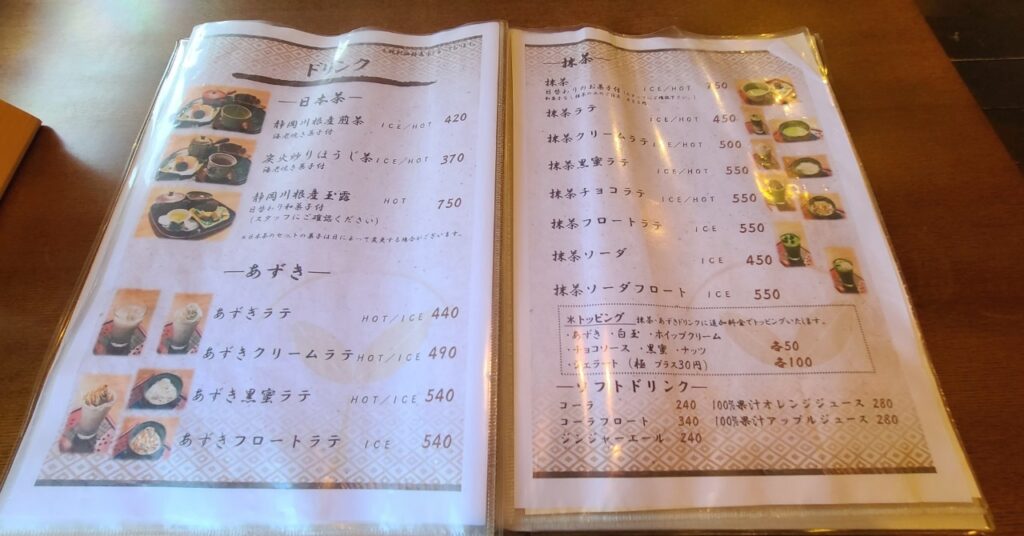 ドリンク
―日本茶―
静岡川根産煎茶 ICE/HOT 420
海老焼き菓子付
炭火炒りほうじ茶 ICE/HOT 370
海老焼き菓子付
静岡川根産 玉露 HOT 750
日替わり和菓子付
(スタッフにご確認ください)
※日本茶のセットの菓子は日によって変更する場合がございます。
―あずき―
あずきラテ HOT/ICE 440
あずきクリームラテ HOT/ICE 490
あずき黒蜜ラテ HOT/ICE 540
あずきフロートラテ ICE 540
―抹茶―
抹茶 ICE/HOT 750
日替わりのお菓子付(スタッフにご確認下さい。)
抹茶ラテ ICE/HOT 450
抹茶クリームラテ ICE/HOT 500
抹茶黒蜜ラテ ICE/HOT 550
抹茶チョコラテ ICE/HOT 550
抹茶フロートラテ ICE 550
抹茶ソーダ ICE 450
抹茶ソーダフロート ICE 550
※トッピング 抹茶・あずきドリンクに追加料金でトッピングいたします。
・あずき ・白玉 ・ホイップクリーム
・チョコソース ・黒蜜 ・ナッツ 各50
・ジェラート(極 プラス30円) 各100
―ソフトドリンク―
コーラ 240 100%果汁オレンジジュース 280
コーラフロート 340 100%果汁アップルジュース 280
ジンジャーエール 240